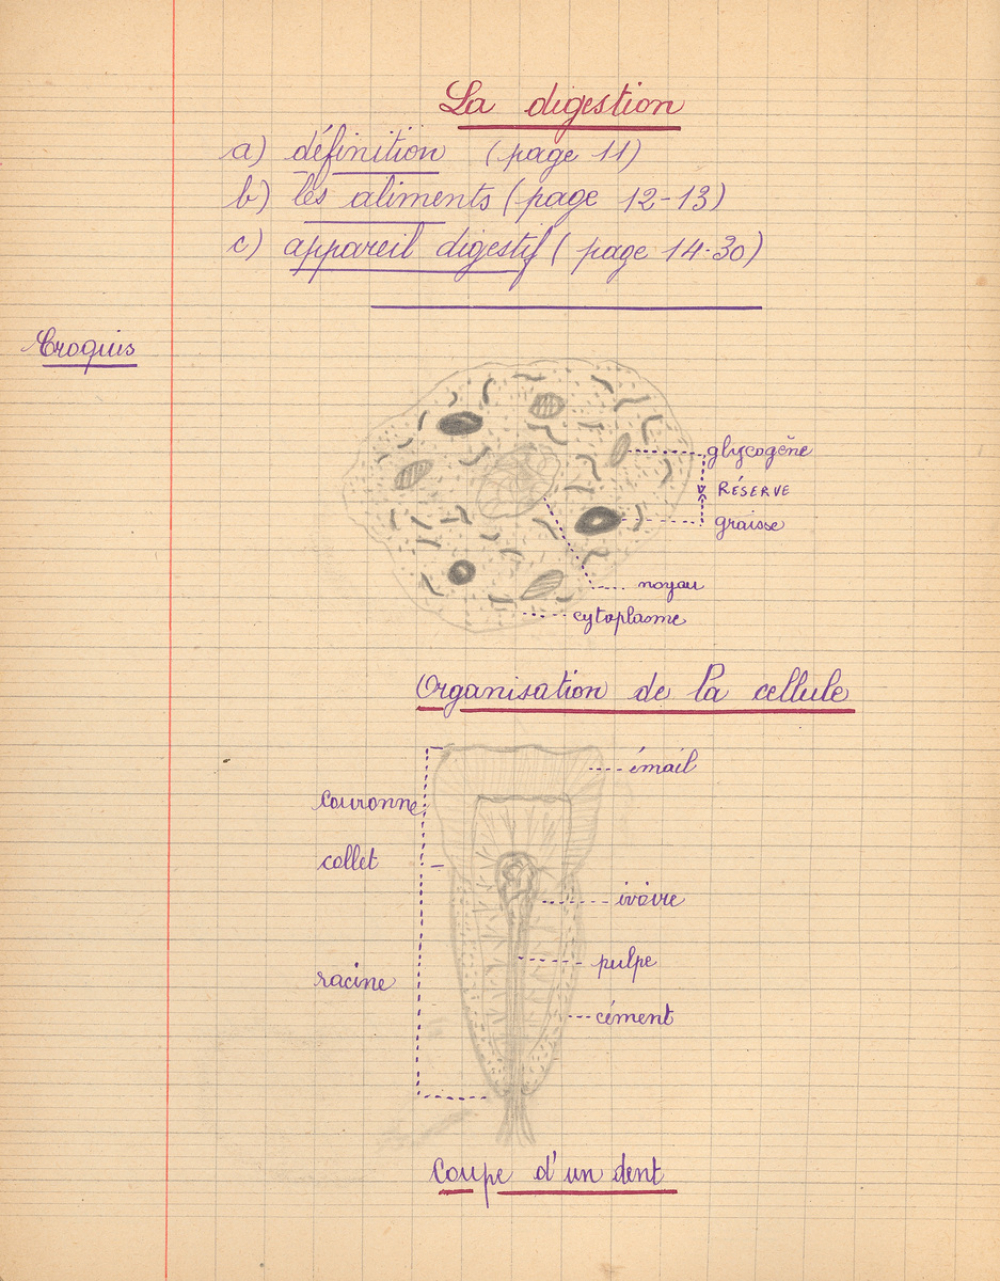 La digestion
a) définition (page 11)
b) les aliments (page 12-13)
c) appareil digestif (page 14-30)
Croquis
glycogène
RÉSERVE
graisse
noyau
cytoplasme
Organisation de la cellule
émail
couronne
collet
ivoire
pulpe
racine
cément
Coupe d'un dent